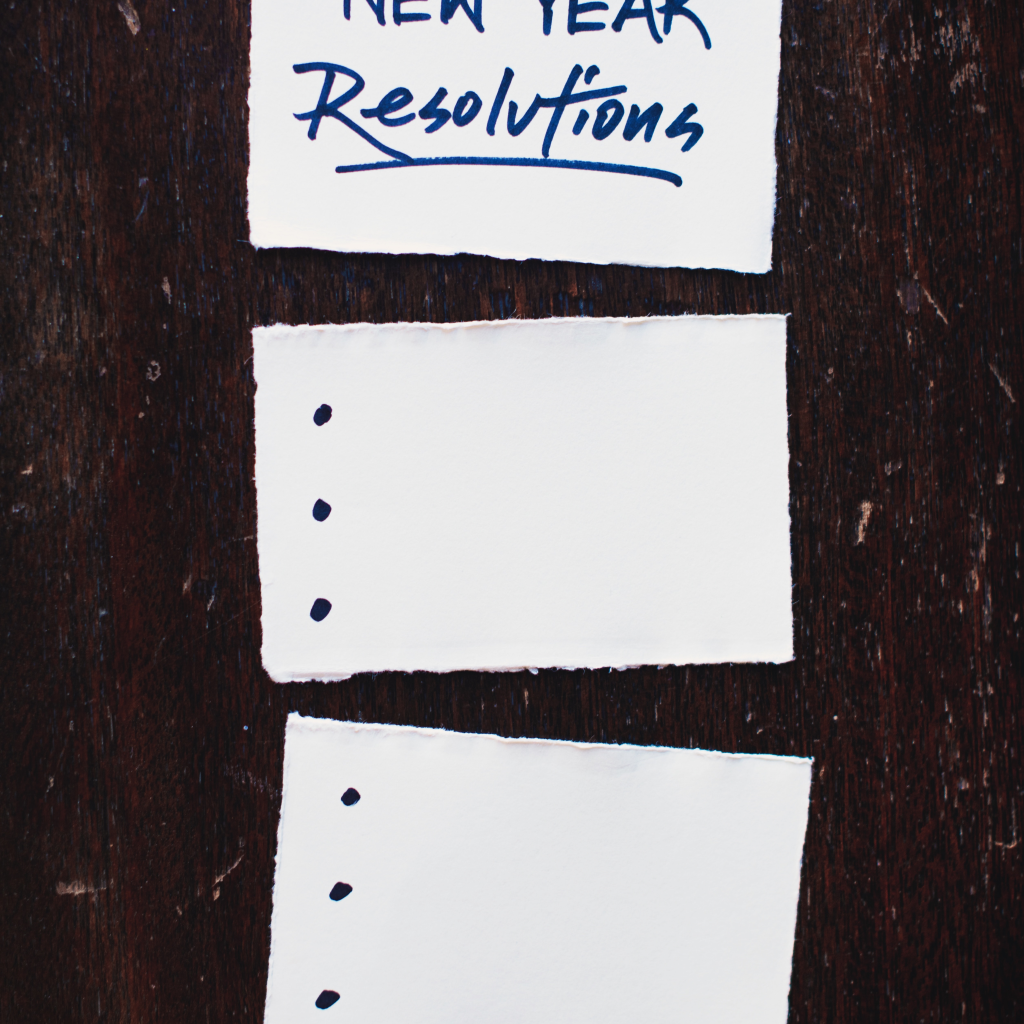 NEW YEAR
Resolutions